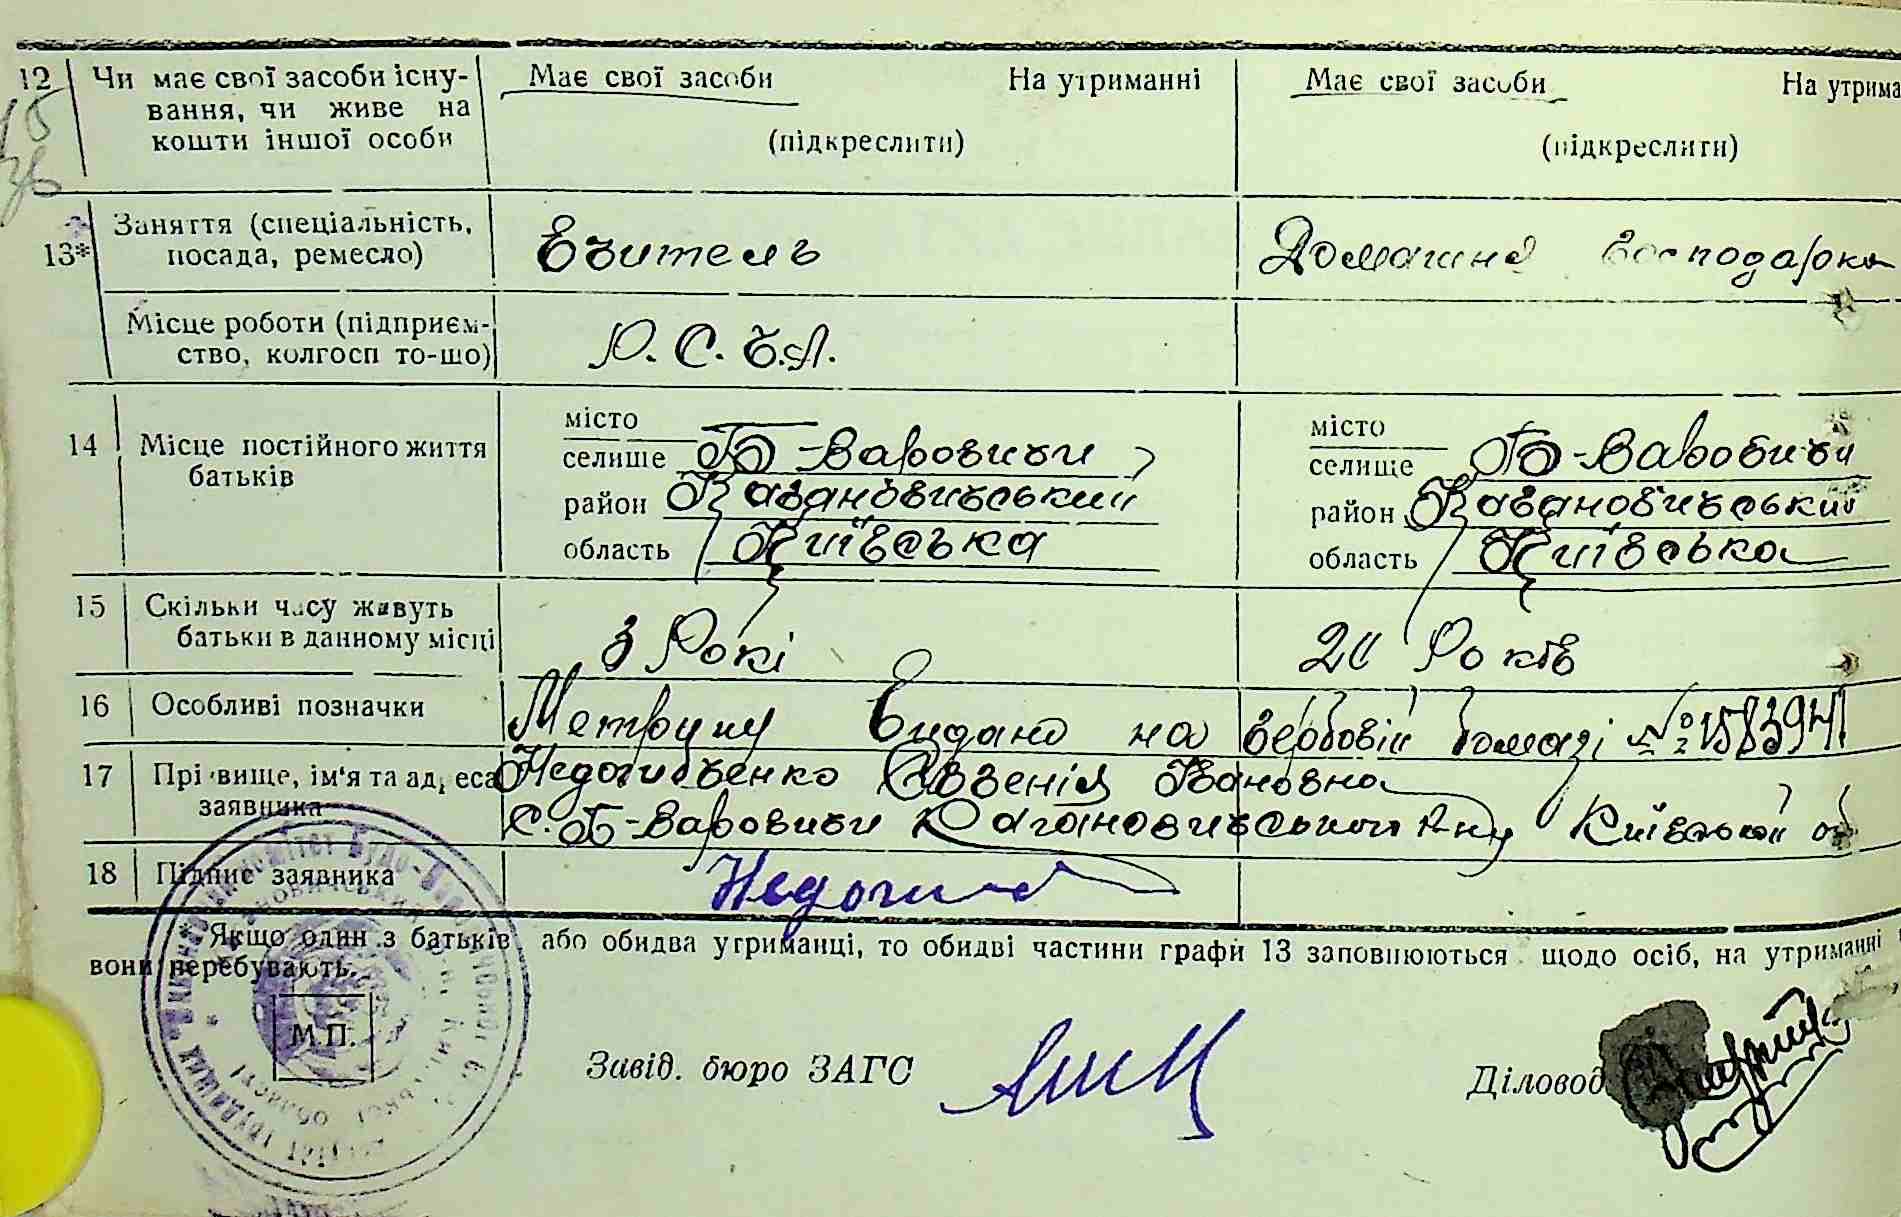 12 Чи має свої засоби існу- Має свої засоби На утриманні Має свої засоби На утрима
вання, чи живе на
кошти іншої особи (підкреслити) (підкреслити)
13* Заняття (спеціальність, посада, ремесло) Вчитель Домашня господарка
Місце роботи (підприєм-
ство, колгосп то-що)
14 Місце постійного життя батьків
місто місто
селище Б-Варовичи селище Б-Варовичи
район Кагановичський район Кагановичський
область Київська область Київська
15 Скільки часу живуть
батьки в данному місці 3 Рокі Років
16 Особливі позначки Метрику Видано на гербовій бомазі №
17 Прізвище, ім'я та адреса Євгенія Івановна
заявника с. Б-Варовичи Кагановичського Р-ну Київської об
18 Підпис заявника
* Якщо один з батьків або обидва утриманці, то обидві частини графи 13 заповнюються щодо осіб, на утриманні
вони перебувають.
М.П.
Завід. бюро ЗАГС Діловод